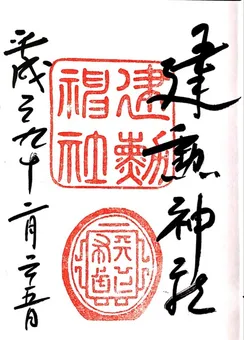 建勲神社
建勲神社
平成二九十二月二五日